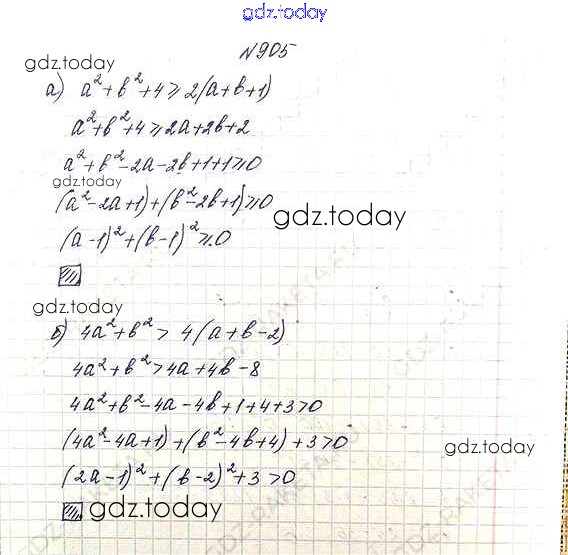 gdz.today
№905
gdz.today
а) a²+b²+4≥2(a+b+1)
a²+b²+4≥2a+2b+2
a²+b²-2a-2b+1+1≥0
gdz.today
(a²-2a+1)+(b²-2b+1)≥0
gdz.today
(a-1)²+(b-1)²≥0
gdz.today
б) 4a²+b²>4(a+b-2)
4a²+b²>4a+4b-8
4a²+b²-4a-4b+1+4+3>0
(4a²-4a+1)+(b²-4b+4)+3>0
gdz.today
(2a-1)²+(b-2)²+3>0
gdz.today